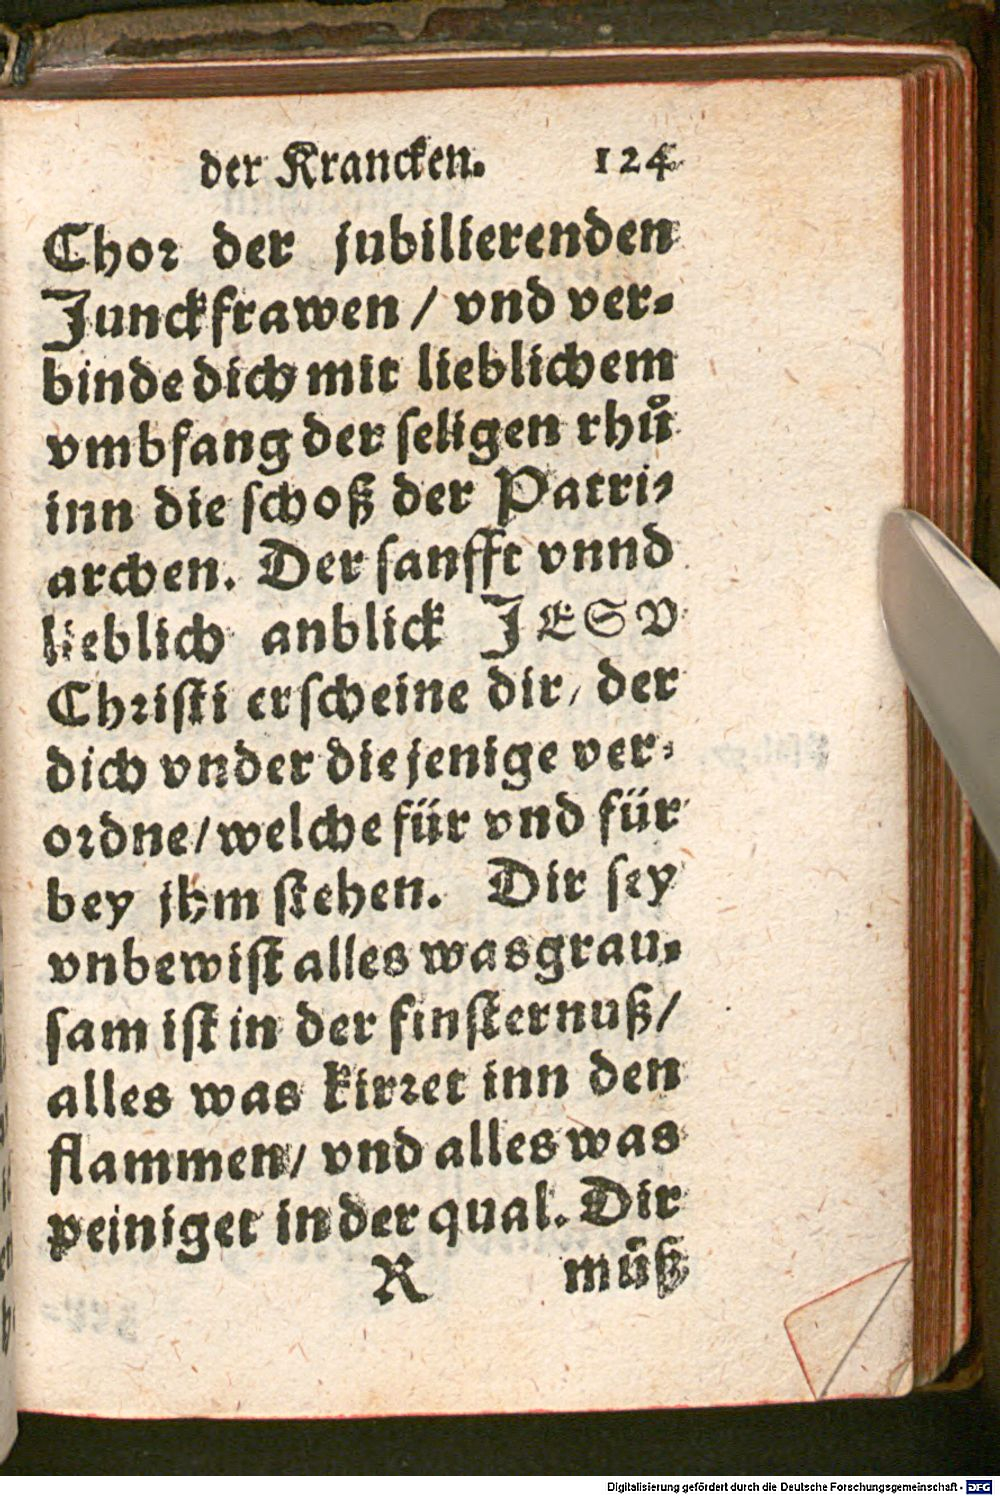 der Krancken. 124
Chor der jubilierenden
Junckfrawen / vnd ver-
binde dich mit lieblichem
vmbfang der seligen rhů
inn die schoß der Patri-
archen. Der sanfft vnnd
lieblich anblick JESV
Christi erscheine dir / der
dich vnder die jenige ver-
ordne / welche für vnd für
bey jhm stehen. Dir sey
vnbewist alles was grau-
sam ist in der finsternuß /
alles was kirret inn den
flammen / vnd alles was
peiniget in der qual. Dir
R müß
Digitalisierung gefördert durch die Deutsche Forschungsgemeinschaft - DFG